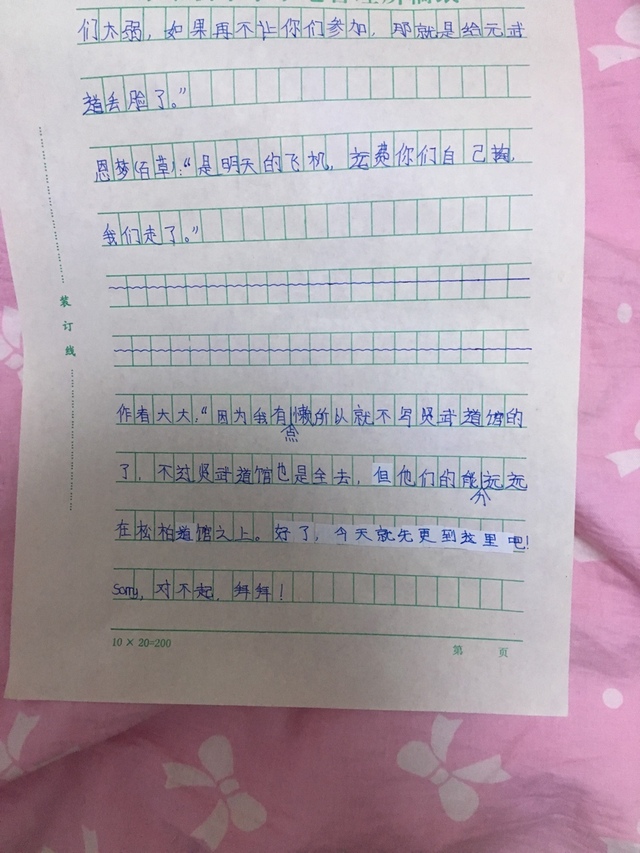 们太弱，如果再不让你们参加，那就是给元武
道丢脸了。”
恩梦(百草)：“是明天的飞机，运费你们自己掏，
我们走了。”
装订线
作者大大：“因为我有点懒所以就不写贤武道馆的
了，不过贤武道馆也是全去，但他们的能分远远
在松柏道馆之上。好了，今天就先更到这里吧！
sorry，对不起，拜拜！
10×20=200
第 页